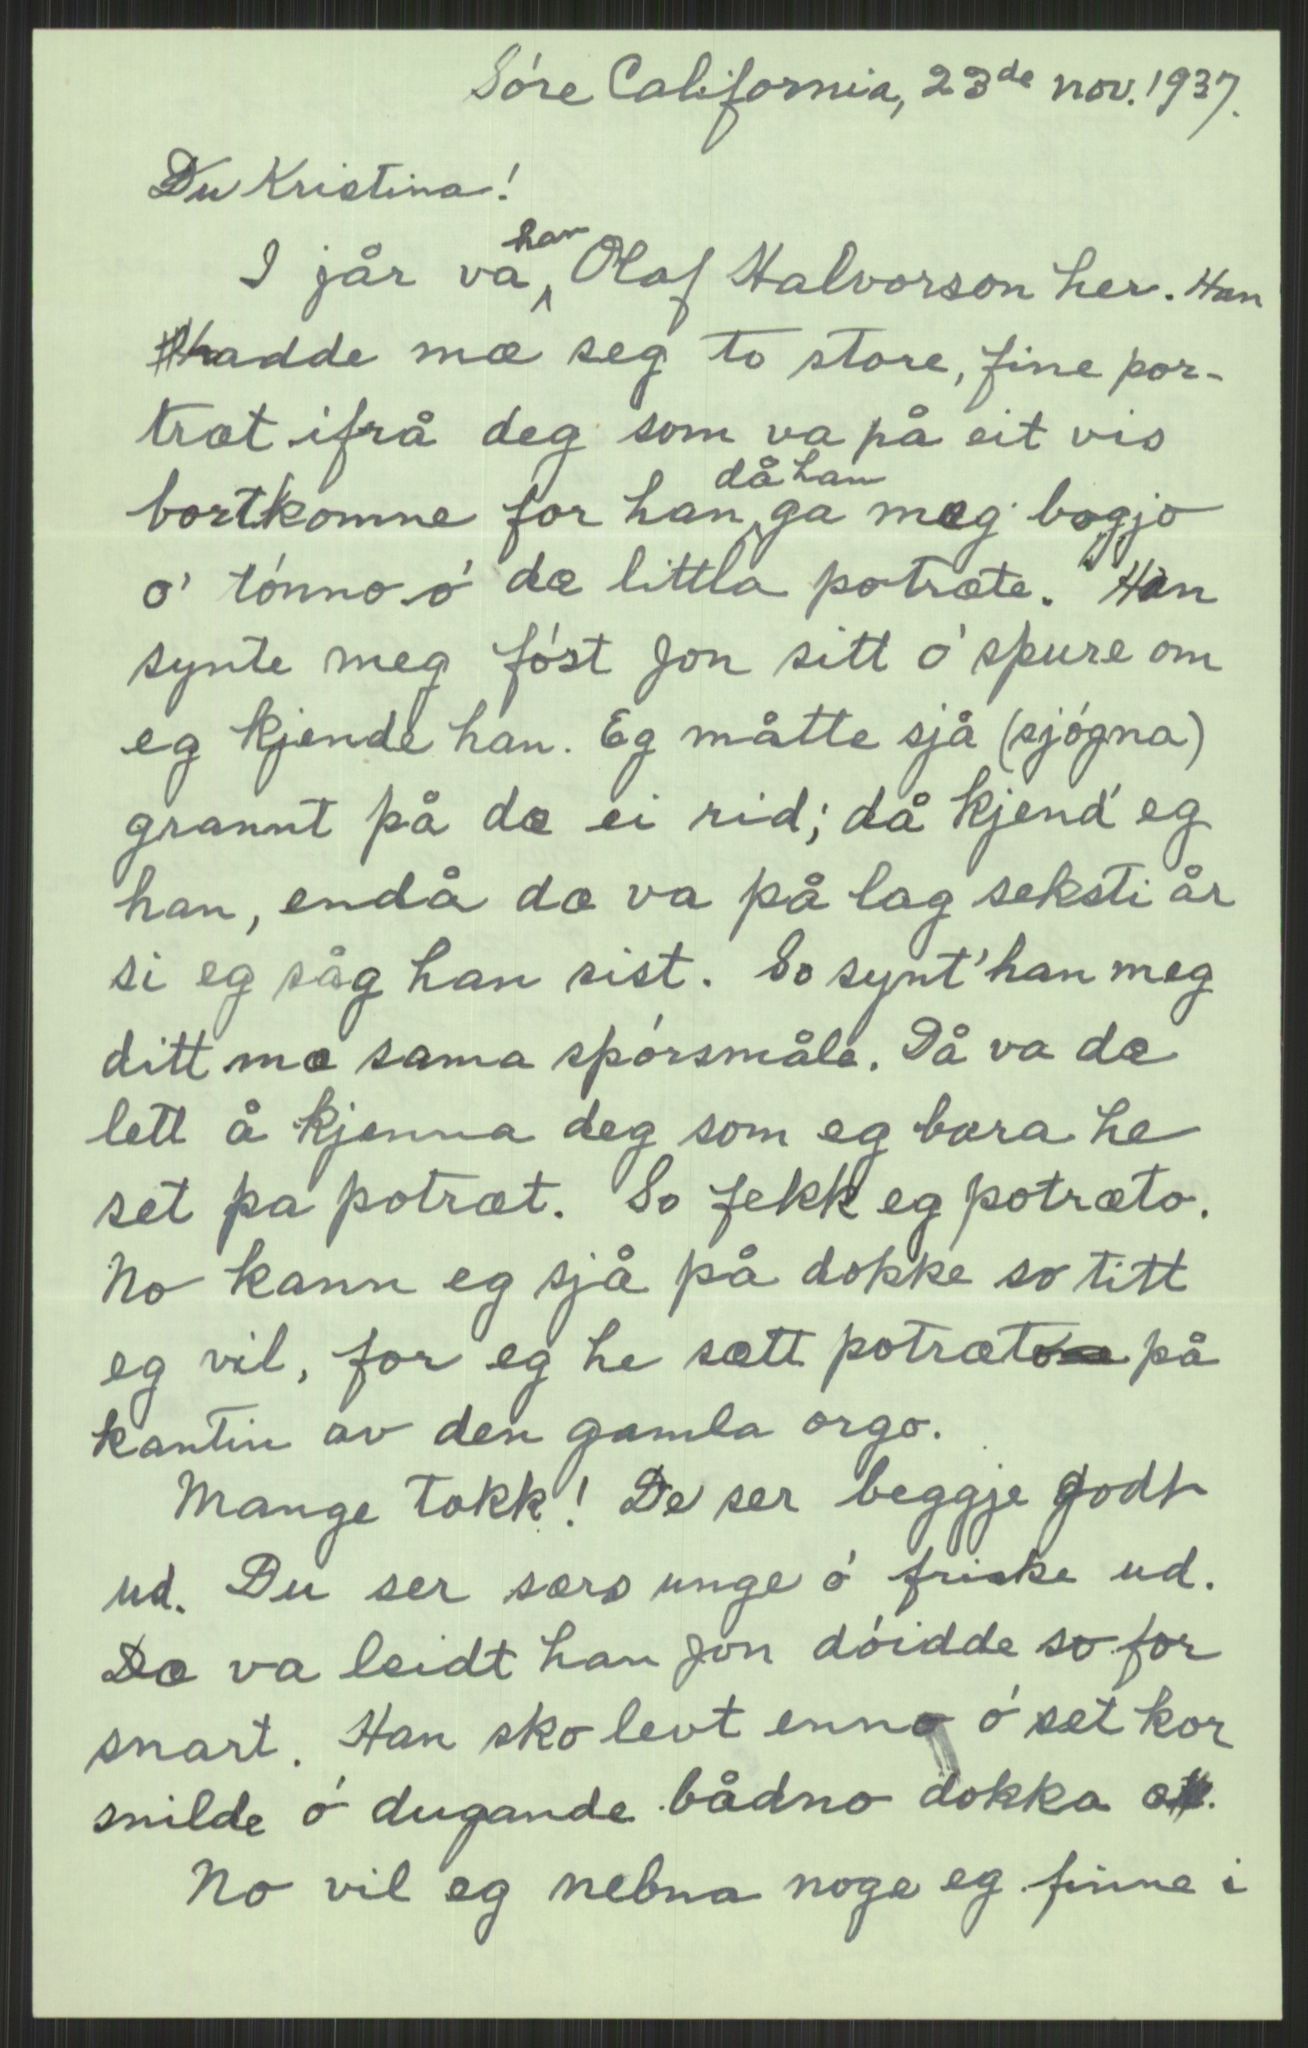 Sóre California, 23de nov. 1937.
Du Kristina!
I jår va han Olaf Halvorson her. Han
hadde mæ seg to store, fine por-
træt ifrå deg som va på eit vis
bortkomne for han då han ga meg bogjo
o' tónno ó dæ littla potræte. Han
synte meg fóst Jon sitt ó spure om
eg kjende han. Eg måtte sjå (sjógna)
grannt på dæ ei rid; då kjend' eg
han, endå dæ va på lag seksti år
si eg såg han sist. So synt' han meg
ditt mæ sama spórsmåle. Då va dæ
lett å kjenna deg som eg bæra he
set pa potræt. So fekk eg potræto.
No kann eg sjå på dokke so titt
eg vil, for eg he sætt potræto på
kantin av den gamla orgo.
Mange takk! De ser beggje godt
ud. Du ser særs unge ó friske ud.
Dæ va leidt han Jon dóidde so for
snart. Han sko levt enno ó set kor
snilde ó dugande bådno dokka æ.
No vil eg nebna noge eg finne i